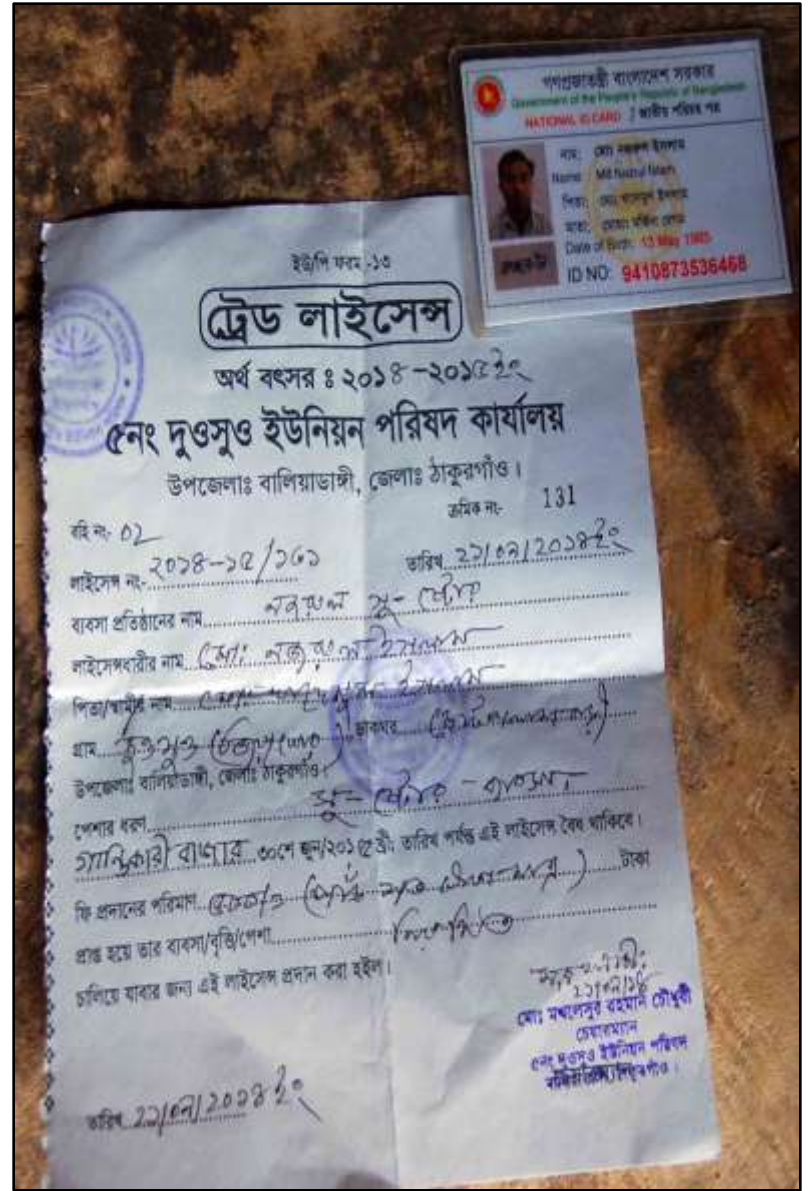 গণপ্রজাতন্ত্রী বাংলাদেশ সরকার
Government of the People's Republic of Bangladesh
NATIONAL ID CARD / জাতীয় পরিচয় পত্র
নাম: মোঃ নজরুল ইসলাম
Name: Md Nazrul Islam
পিতা: মোঃ ইসলাম
মাতা: মোছাঃ বেগম
Date of Birth: 13 May 1985
ID NO: 9410873536468
ইউ/পি ফরম -১৩
ট্রেড লাইসেন্স
অর্থ বৎসর ঃ ২০১৪-২০১৫ইং
৫নং দুওসুও ইউনিয়ন পরিষদ কার্যালয়
উপজেলাঃ বালিয়াডাঙ্গী, জেলাঃ ঠাকুরগাঁও।
ক্রমিক নং- 131
বহি নং- 02
লাইসেন্স নং- ২০১৪-১৫/১৩১
তারিখ ২১/০৭/২০১৪ইং
ব্যবসা প্রতিষ্ঠানের নাম নজরুল সু-ষ্টোর
লাইসেন্সধারীর নাম মোঃ নজরুল ইসলাম
পিতা/স্বামীর নাম মোঃ ইসলাম
গ্রাম দুওসুও ডাকঘর
উপজেলাঃ বালিয়াডাঙ্গী, জেলাঃ ঠাকুরগাঁও।
পেশার ধরণ সু-ষ্টোর-ব্যবসা
বাজার ৩০শে জুন/২০১৫ খ্রীঃ তারিখ পর্যন্ত এই লাইসেন্স বৈধ থাকিবে।
ফি প্রদানের পরিমাণ টাকা
প্রাপ্ত হয়ে তার ব্যবসা/বৃত্তি/পেশা
চালিয়ে যাবার জন্য এই লাইসেন্স প্রদান করা হইল।
মোঃ রহমান চৌধুরী
চেয়ারম্যান
৫নং দুওসুও ইউনিয়ন পরিষদ
তারিখ ২১/০৭/২০১৪ইং